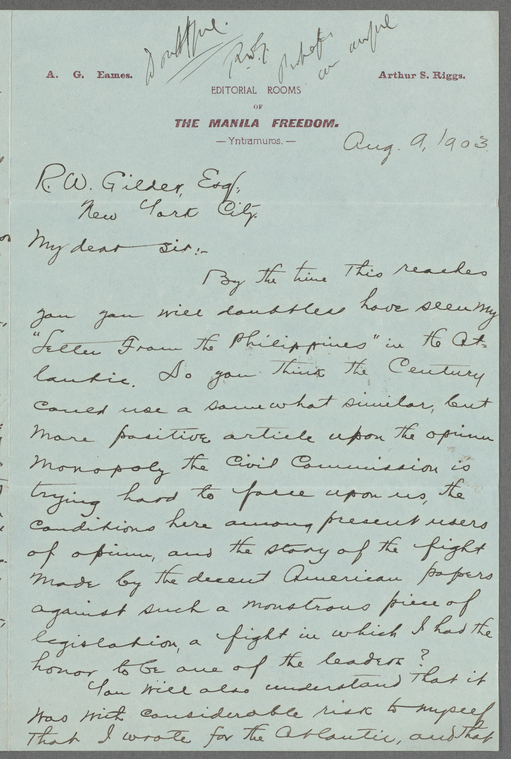 Doubtful.
R.W.G.
an awful
A. G. Eames.
Arthur S. Riggs.
EDITORIAL ROOMS
OF
THE MANILA FREEDOM.
— Yntramuros. —
Aug. 9, 1903
R. W. Gilder, Esq.,
New York City.
My dear Sir:-
By the time this reaches
you you will doubtless have seen my
"Letter From the Philippines" in the At-
lantic. Do you think the Century
could use a somewhat similar, but
more positive article upon the opium
monopoly the Civil Commission is
trying hard to force upon us, the
conditions here among present users
of opium, and the story of the fight
made by the decent American papers
against such a monstrous piece of
legislation, a fight in which I had the
honor to be one of the leaders?
You will also understand that it
was with considerable risk to myself
that I wrote for the Atlantic, and that